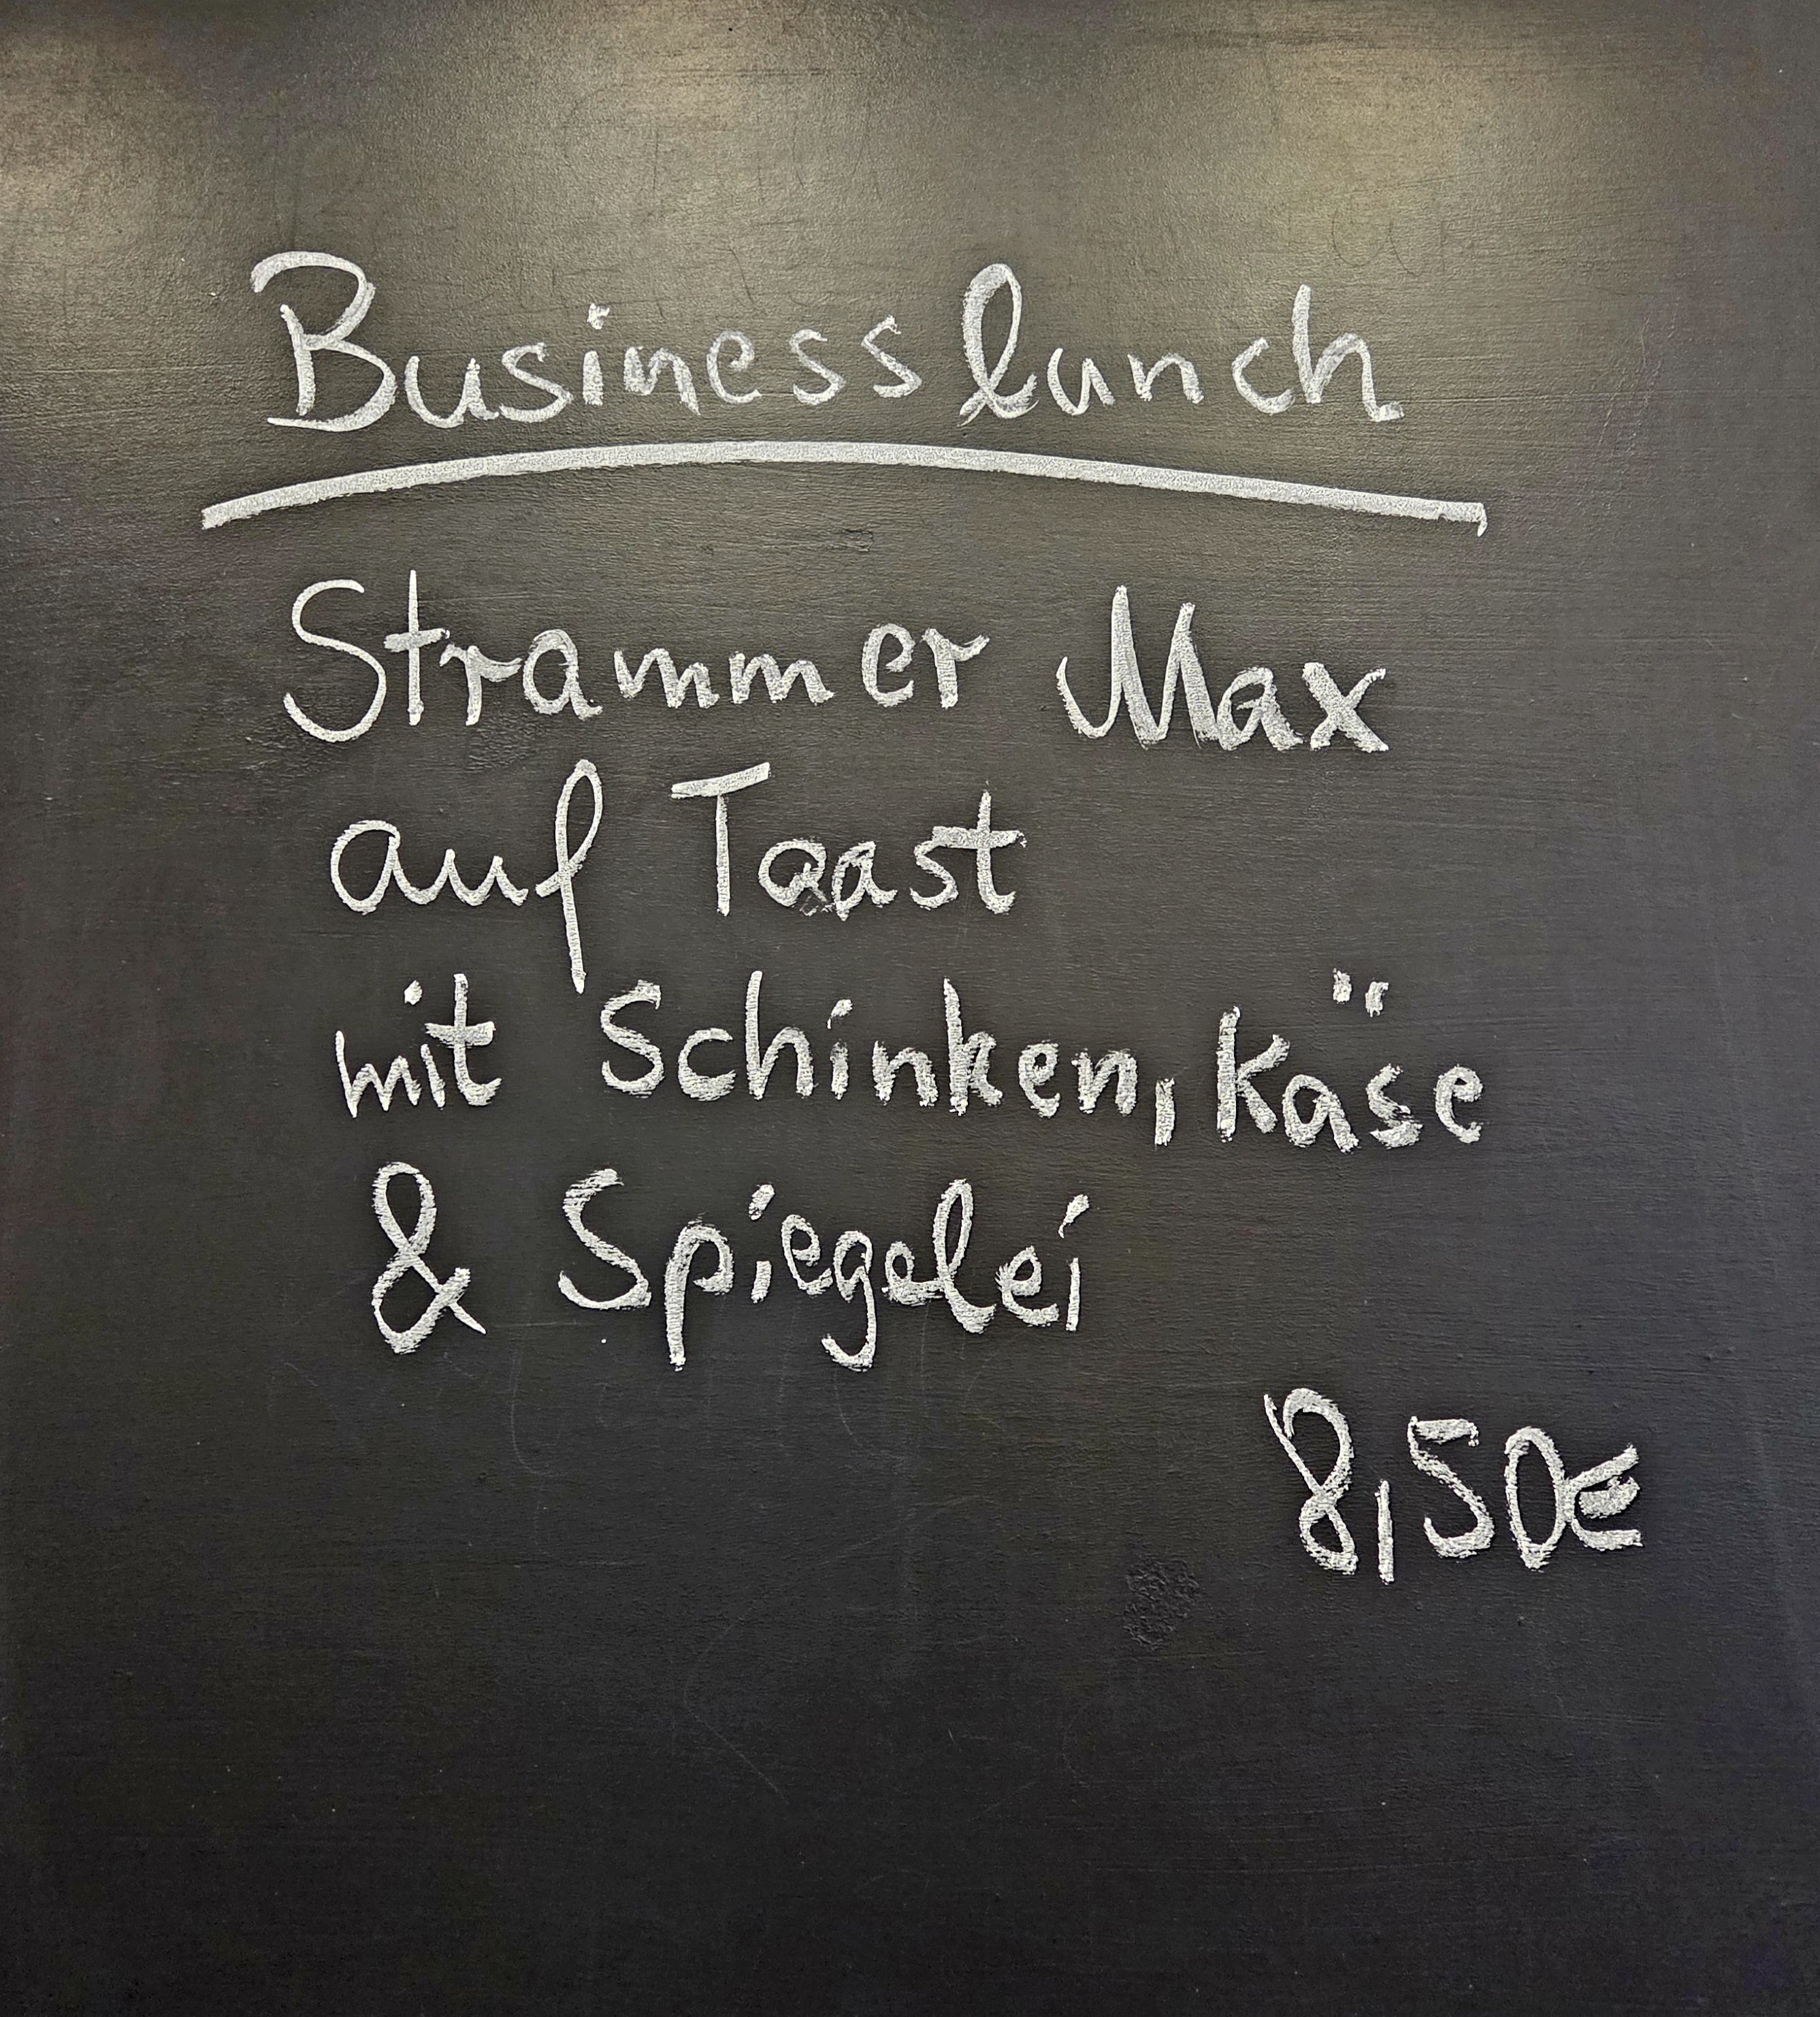 Businesslunch
Strammer Max
auf Toast
mit Schinken, Käse
& Spiegelei
8,50€